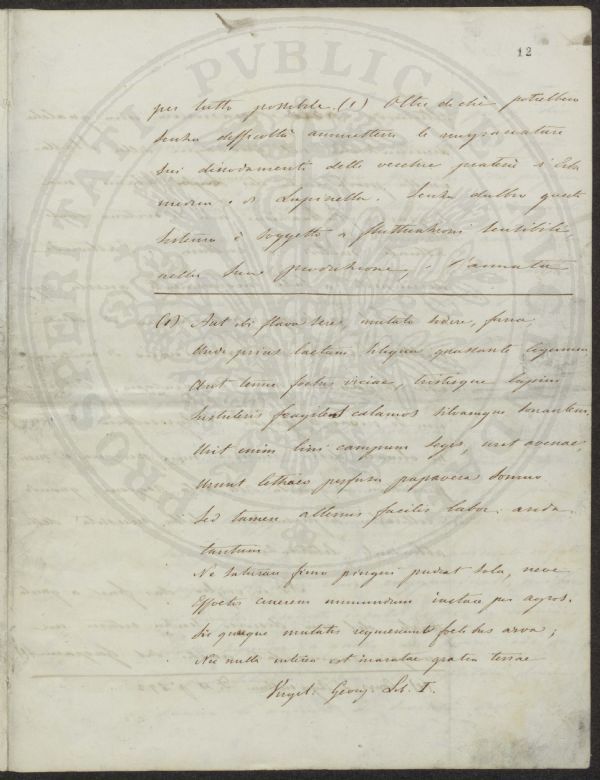 12
per tutto possibile. (1) Oltre di che potrebbesi
senza difficoltà ammettere le
sui dissodamenti delle vecchie praterie d'Erba
medica o di Lupinella. Senza dubbio questo
sistema è soggetto a fluttuazioni sensibili
nella sua produzione, l'annata
(1) Aut ibi flava seres, mutato sidere, farra
Unde prius laetum siliqua quassante legumen
Aut tenuis foetus viciae, tristisque lupini
Sustuleris fragiles calamos silvamque sonantem.
Urit enim lini campum seges, urit avenae,
Urunt lethaeo perfusa papavera somno
Sed tamen alternis facilis labor: arida
tantum
Ne saturare fimo pingui pudeat sola, neve
Effoetos cinerem immundum iactare per agros.
Sic quoque mutatis requiescunt foetibus arva;
Nec nulla interea est inaratae gratia terrae
Virgil: Georg Lib. I.
PROSPERITATI PVBLICAE